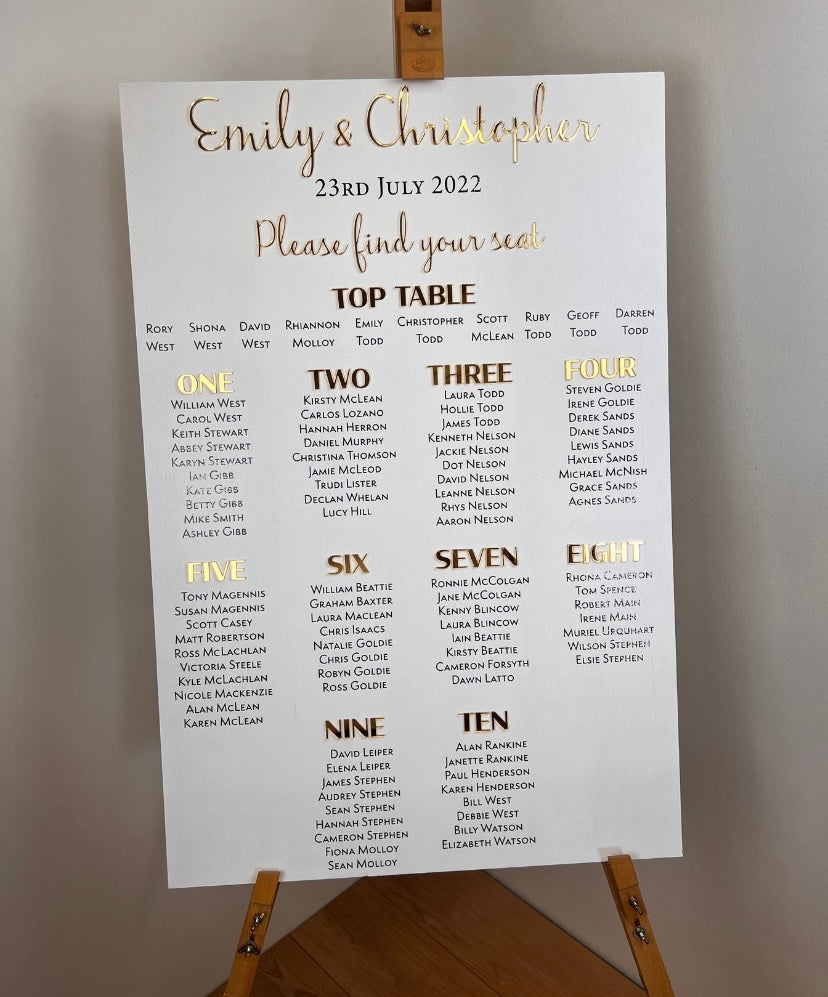 Emily & Christopher
23RD JULY 2022
Please find your seat
TOP TABLE
RORY WEST
SHONA WEST
DAVID WEST
RHIANNON MOLLOY
EMILY TODD
CHRISTOPHER TODD
SCOTT MCLEAN
RUBY TODD
GEOFF TODD
DARREN TODD
ONE
WILLIAM WEST
CAROL WEST
KEITH STEWART
ABBEY STEWART
KARYN STEWART
IAN GIBB
KATE GIBB
BETTY GIBB
MIKE SMITH
ASHLEY GIBB
TWO
KIRSTY MCLEAN
CARLOS LOZANO
HANNAH HERRON
DANIEL MURPHY
CHRISTINA THOMSON
JAMIE MCLEOD
TRUDI LISTER
DECLAN WHELAN
LUCY HILL
THREE
LAURA TODD
HOLLIE TODD
JAMES TODD
KENNETH NELSON
JACKIE NELSON
DOT NELSON
DAVID NELSON
LEANNE NELSON
RHYS NELSON
AARON NELSON
FOUR
STEVEN GOLDIE
IRENE GOLDIE
DEREK SANDS
DIANE SANDS
LEWIS SANDS
HAYLEY SANDS
MICHAEL MCNISH
GRACE SANDS
AGNES SANDS
FIVE
TONY MAGENNIS
SUSAN MAGENNIS
SCOTT CASEY
MATT ROBERTSON
ROSS MCLACHLAN
VICTORIA STEELE
KYLE MCLACHLAN
NICOLE MACKENZIE
ALAN MCLEAN
KAREN MCLEAN
SIX
WILLIAM BEATTIE
GRAHAM BAXTER
LAURA MACLEAN
CHRIS ISAACS
NATALIE GOLDIE
CHRIS GOLDIE
ROBYN GOLDIE
ROSS GOLDIE
SEVEN
RONNIE MCCOLGAN
JANE MCCOLGAN
KENNY BLINCOW
LAURA BLINCOW
IAIN BEATTIE
KIRSTY BEATTIE
CAMERON FORSYTH
DAWN LATTO
EIGHT
RHONA CAMERON
TOM SPENCE
ROBERT MAIN
IRENE MAIN
MURIEL URQUHART
WILSON STEPHEN
ELSIE STEPHEN
NINE
DAVID LEIPER
ELENA LEIPER
JAMES STEPHEN
AUDREY STEPHEN
SEAN STEPHEN
HANNAH STEPHEN
CAMERON STEPHEN
FIONA MOLLOY
SEAN MOLLOY
TEN
ALAN RANKINE
JANETTE RANKINE
PAUL HENDERSON
KAREN HENDERSON
BILL WEST
DEBBIE WEST
BILLY WATSON
ELIZABETH WATSON